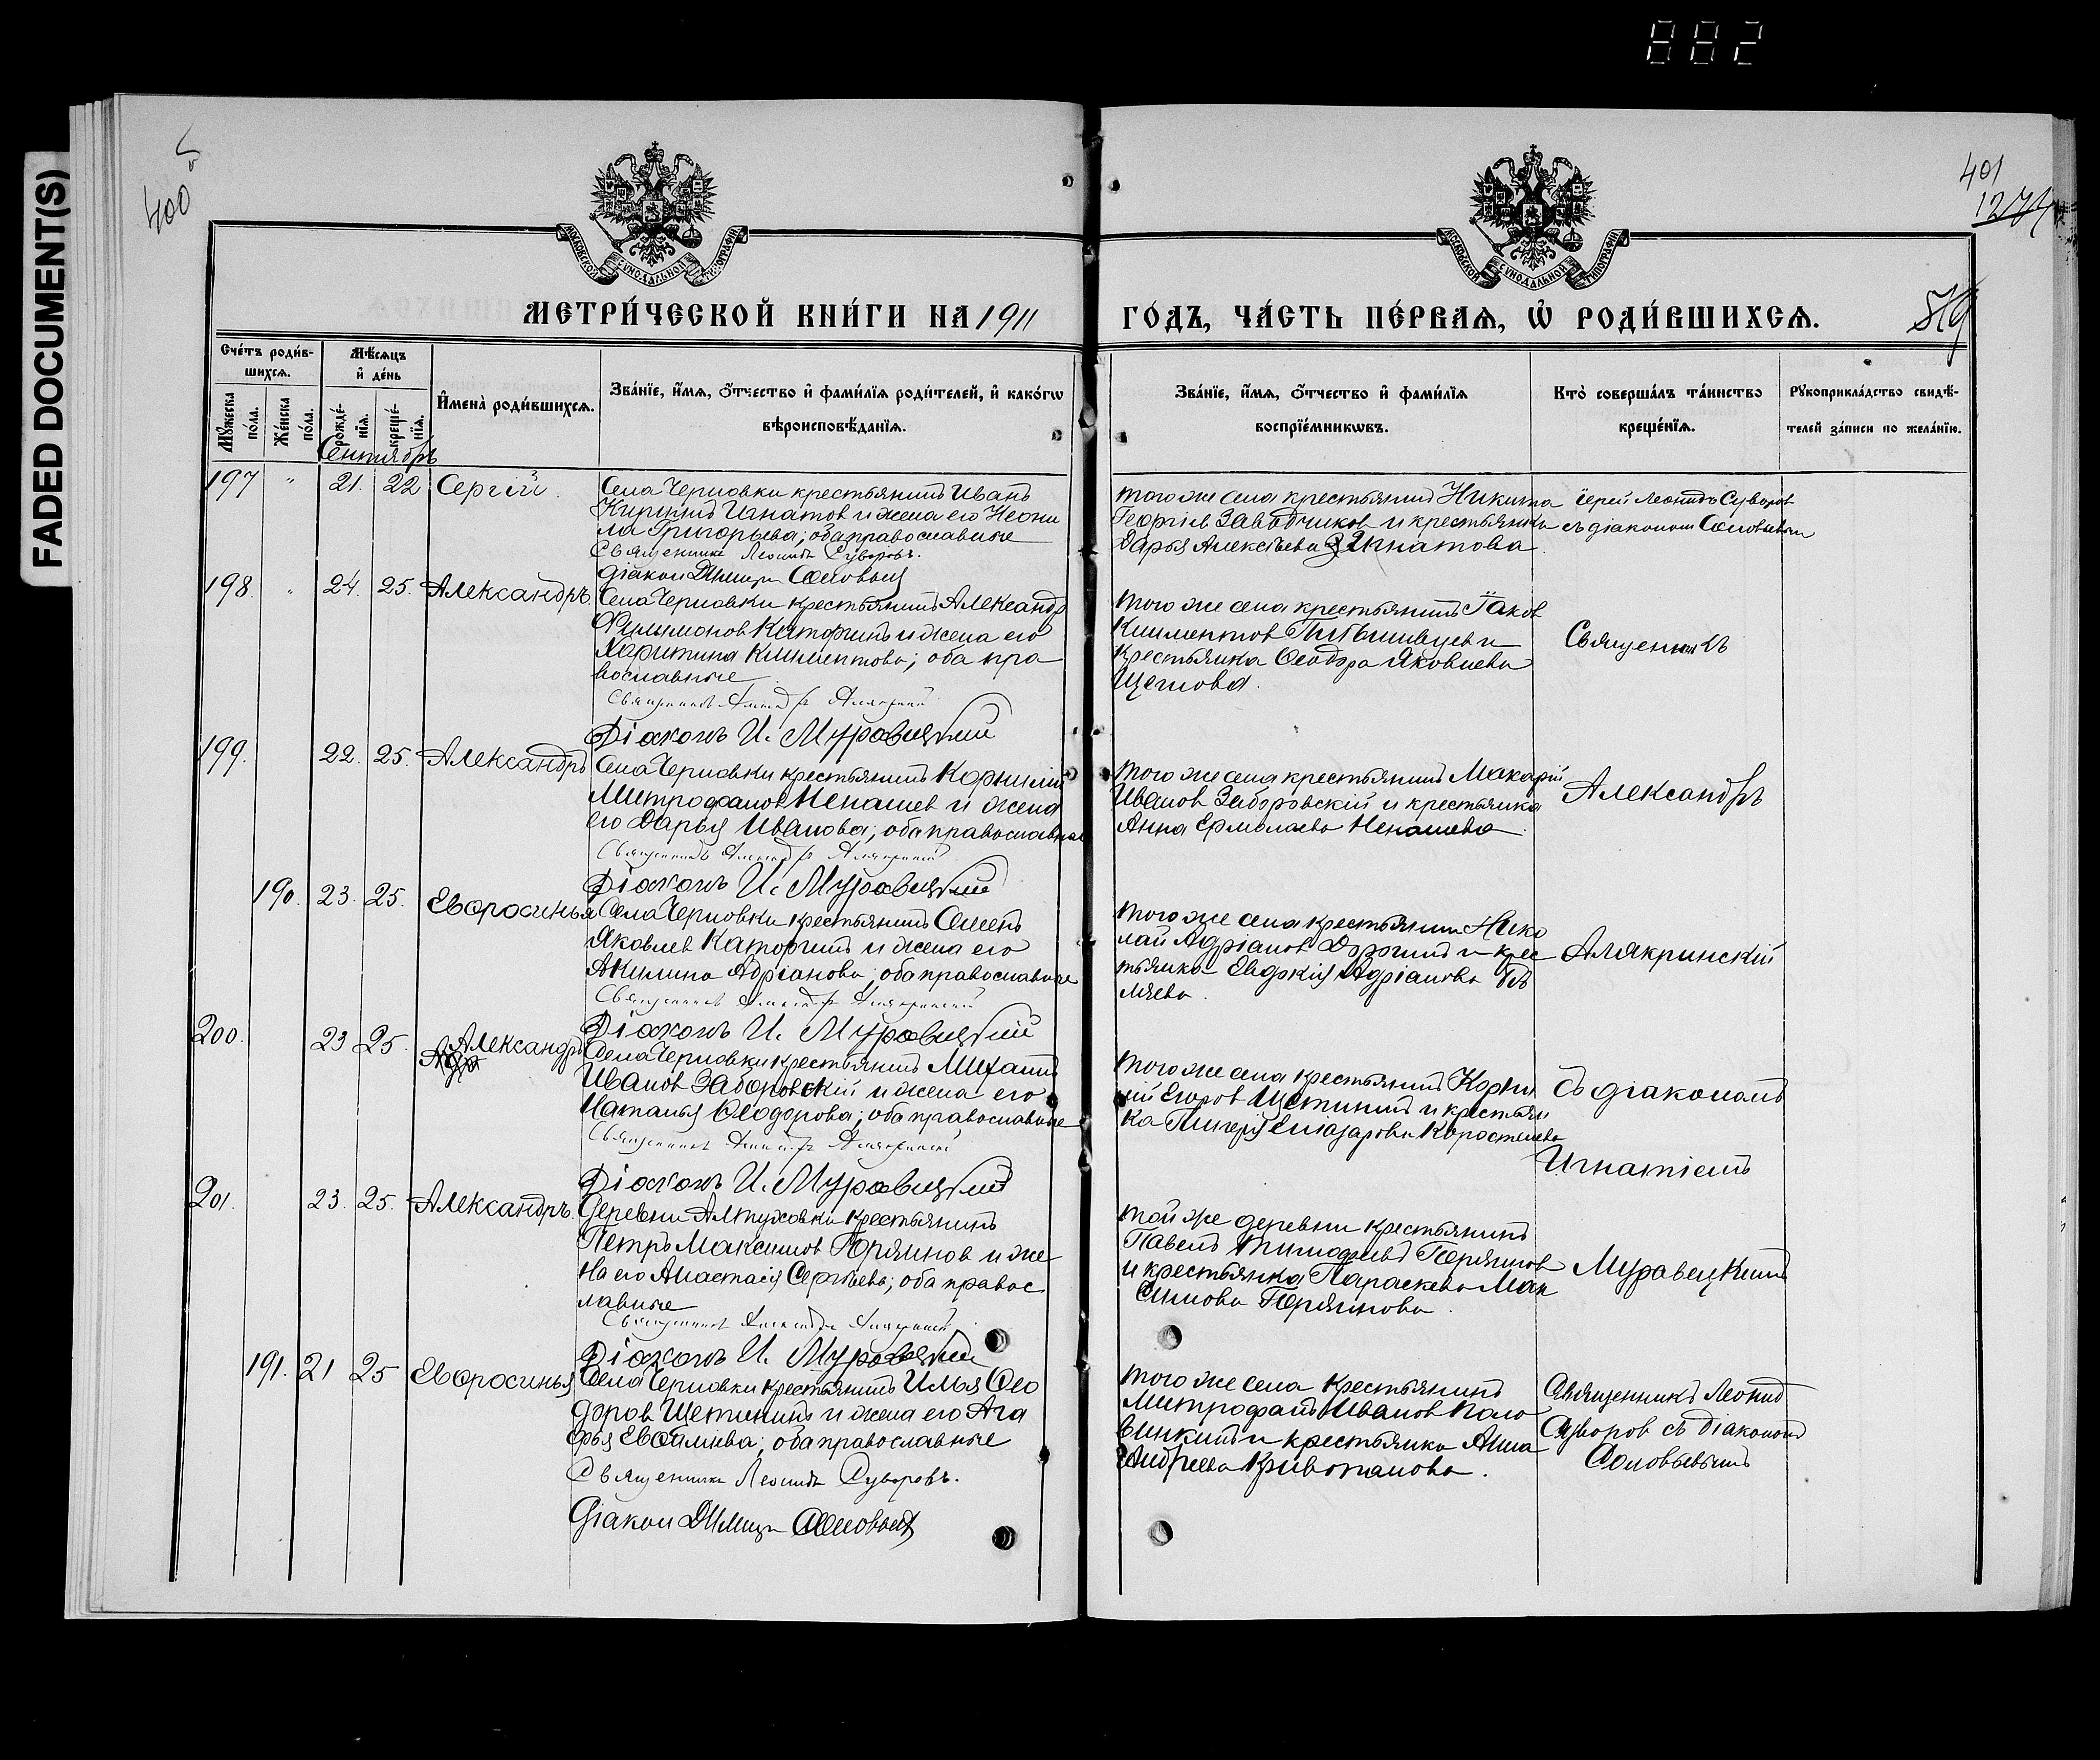 882
FADED DOCUMENT(S)
400
401
1274
519
МОСКОВСКОЙ СУНОДАЛЬНОЙ ТИПОГРАФІИ
МОСКОВСКОЙ СУНОДАЛЬНОЙ ТИПОГРАФІИ
МЕТРИ́ЧЕСКОЙ КНИ́ГИ НА 1911
ГО́ДЪ, ЧА́СТЬ ПЕ́РВАѦ, Ѡ҆ РОДИ́ВШИХСѦ.
Сче́тъ роди́в-
шихсѧ.
Мꙋ́жеска по́ла.
Же́нска по́ла.
Мѣ́сѧцъ
и҆ де́нь
рожде́-
нїѧ.
креще́-
нїѧ.
И҆мена̀ роди́вшихсѧ.
Зва́нїе, и҆́мѧ, ѻ҆́тчество и҆ фами́лїѧ роди́телей, и҆ како́гѡ
вѣроисповѣ́данїѧ.
Зва́нїе, и҆́мѧ, ѻ҆́тчество и҆ фами́лїѧ
воспрїе́мникѡвъ.
Кто̀ соверша́лъ та́инство
креще́нїѧ.
Рꙋкоприкла́дство свидѣ́-
телей за́писи по жела́нїю.
Сентябрь
197 " 21. 22 Сергій.
Села Черновки крестьянинъ Иванъ
Кириллъ Игнатов и жена его Неони
ла Григорьева; оба православные
Священникъ Леонидъ Суворовъ.
діакон Дмитр Соловьев
того же села крестьянинъ Никита
Георгіев Заводчиков и крестьянка
Дарья Алексѣева Игнатова.
іерей Леонидъ Суворов
съ діаконом Соловьевым
198. " 24. 25. Александръ.
Села Черновки крестьянинъ Александр
Филимонов Каторгинъ и жена его
Харитина Климентова; оба пра
вославные
Священникъ Александръ Алякринскій
Діаконъ И. Муравецкій
того же села крестьянинъ Іаков
Климентов и
крестьянка Ѳеодора Яковлева
Щеглова.
Священникъ
199. 22. 25. Александръ
Села Черновки крестьянинъ Корнилій
Митрофанов Ненашев и жена
его Дарья Иванова; оба православные
Священникъ Александръ Алякринскій
Діаконъ И. Муравецкій
того же села крестьянинъ Макарій
Иванов Заборовскій и крестьянка
Анна Ермолаева Ненашева
Александръ
190. 23. 25. Евѳросинья
Села Черновки крестьянинъ Семенъ
Яковлев Каторгинъ и жена его
Акилина Адріанова; оба православные
Священникъ Александръ Алякринскій
Діаконъ И. Муравецкій
того же села крестьянин Нико
лай Адріанов и крес
тьянка Евдокія Адріанова Бѣ
ляева.
Алякринскій
200. 23 25. Александръ
Села Черновки крестьянинъ Михаилъ
Иванов Заборовскій и жена его
Наталья Ѳеодорова; оба православные
Священникъ Александръ Алякринскій
Діаконъ И. Муравецкій
того же села крестьянинъ Корни
лій Егоров Щетининъ и крестьян
ка Гликерія Елиазарова Коростелева
съ діакономъ
Игнатіемъ
201. 23. 25. Александръ.
деревни Алтуховки крестьянинъ
Петръ Максимов Горяинов и же
на его Анастасія Сергѣева; оба правос
лавные
Священникъ Александръ Алякринскій
Діаконъ И. Муравецкій
той же деревни крестьянинъ
Павелъ Тимофеевъ Горяинов
и крестьянка Параскева Мак
симова Горяинова.
Муравецкимъ
191. 21 25 Евѳросинья
Села Черновки крестьянинъ Илья Ѳео
доров Щетининъ и жена его Ага
фья Евѳиміева; оба православные
Священникъ Леонидъ Суворовъ.
діакон Дмитр Соловьев
того же села крестьянинъ
Митрофанъ Иванов Поло
винкинъ и крестьянка Анна
Андреева Кривопалова.
Священникъ Леонид
Суворов съ діакономъ
Соловьевымъ